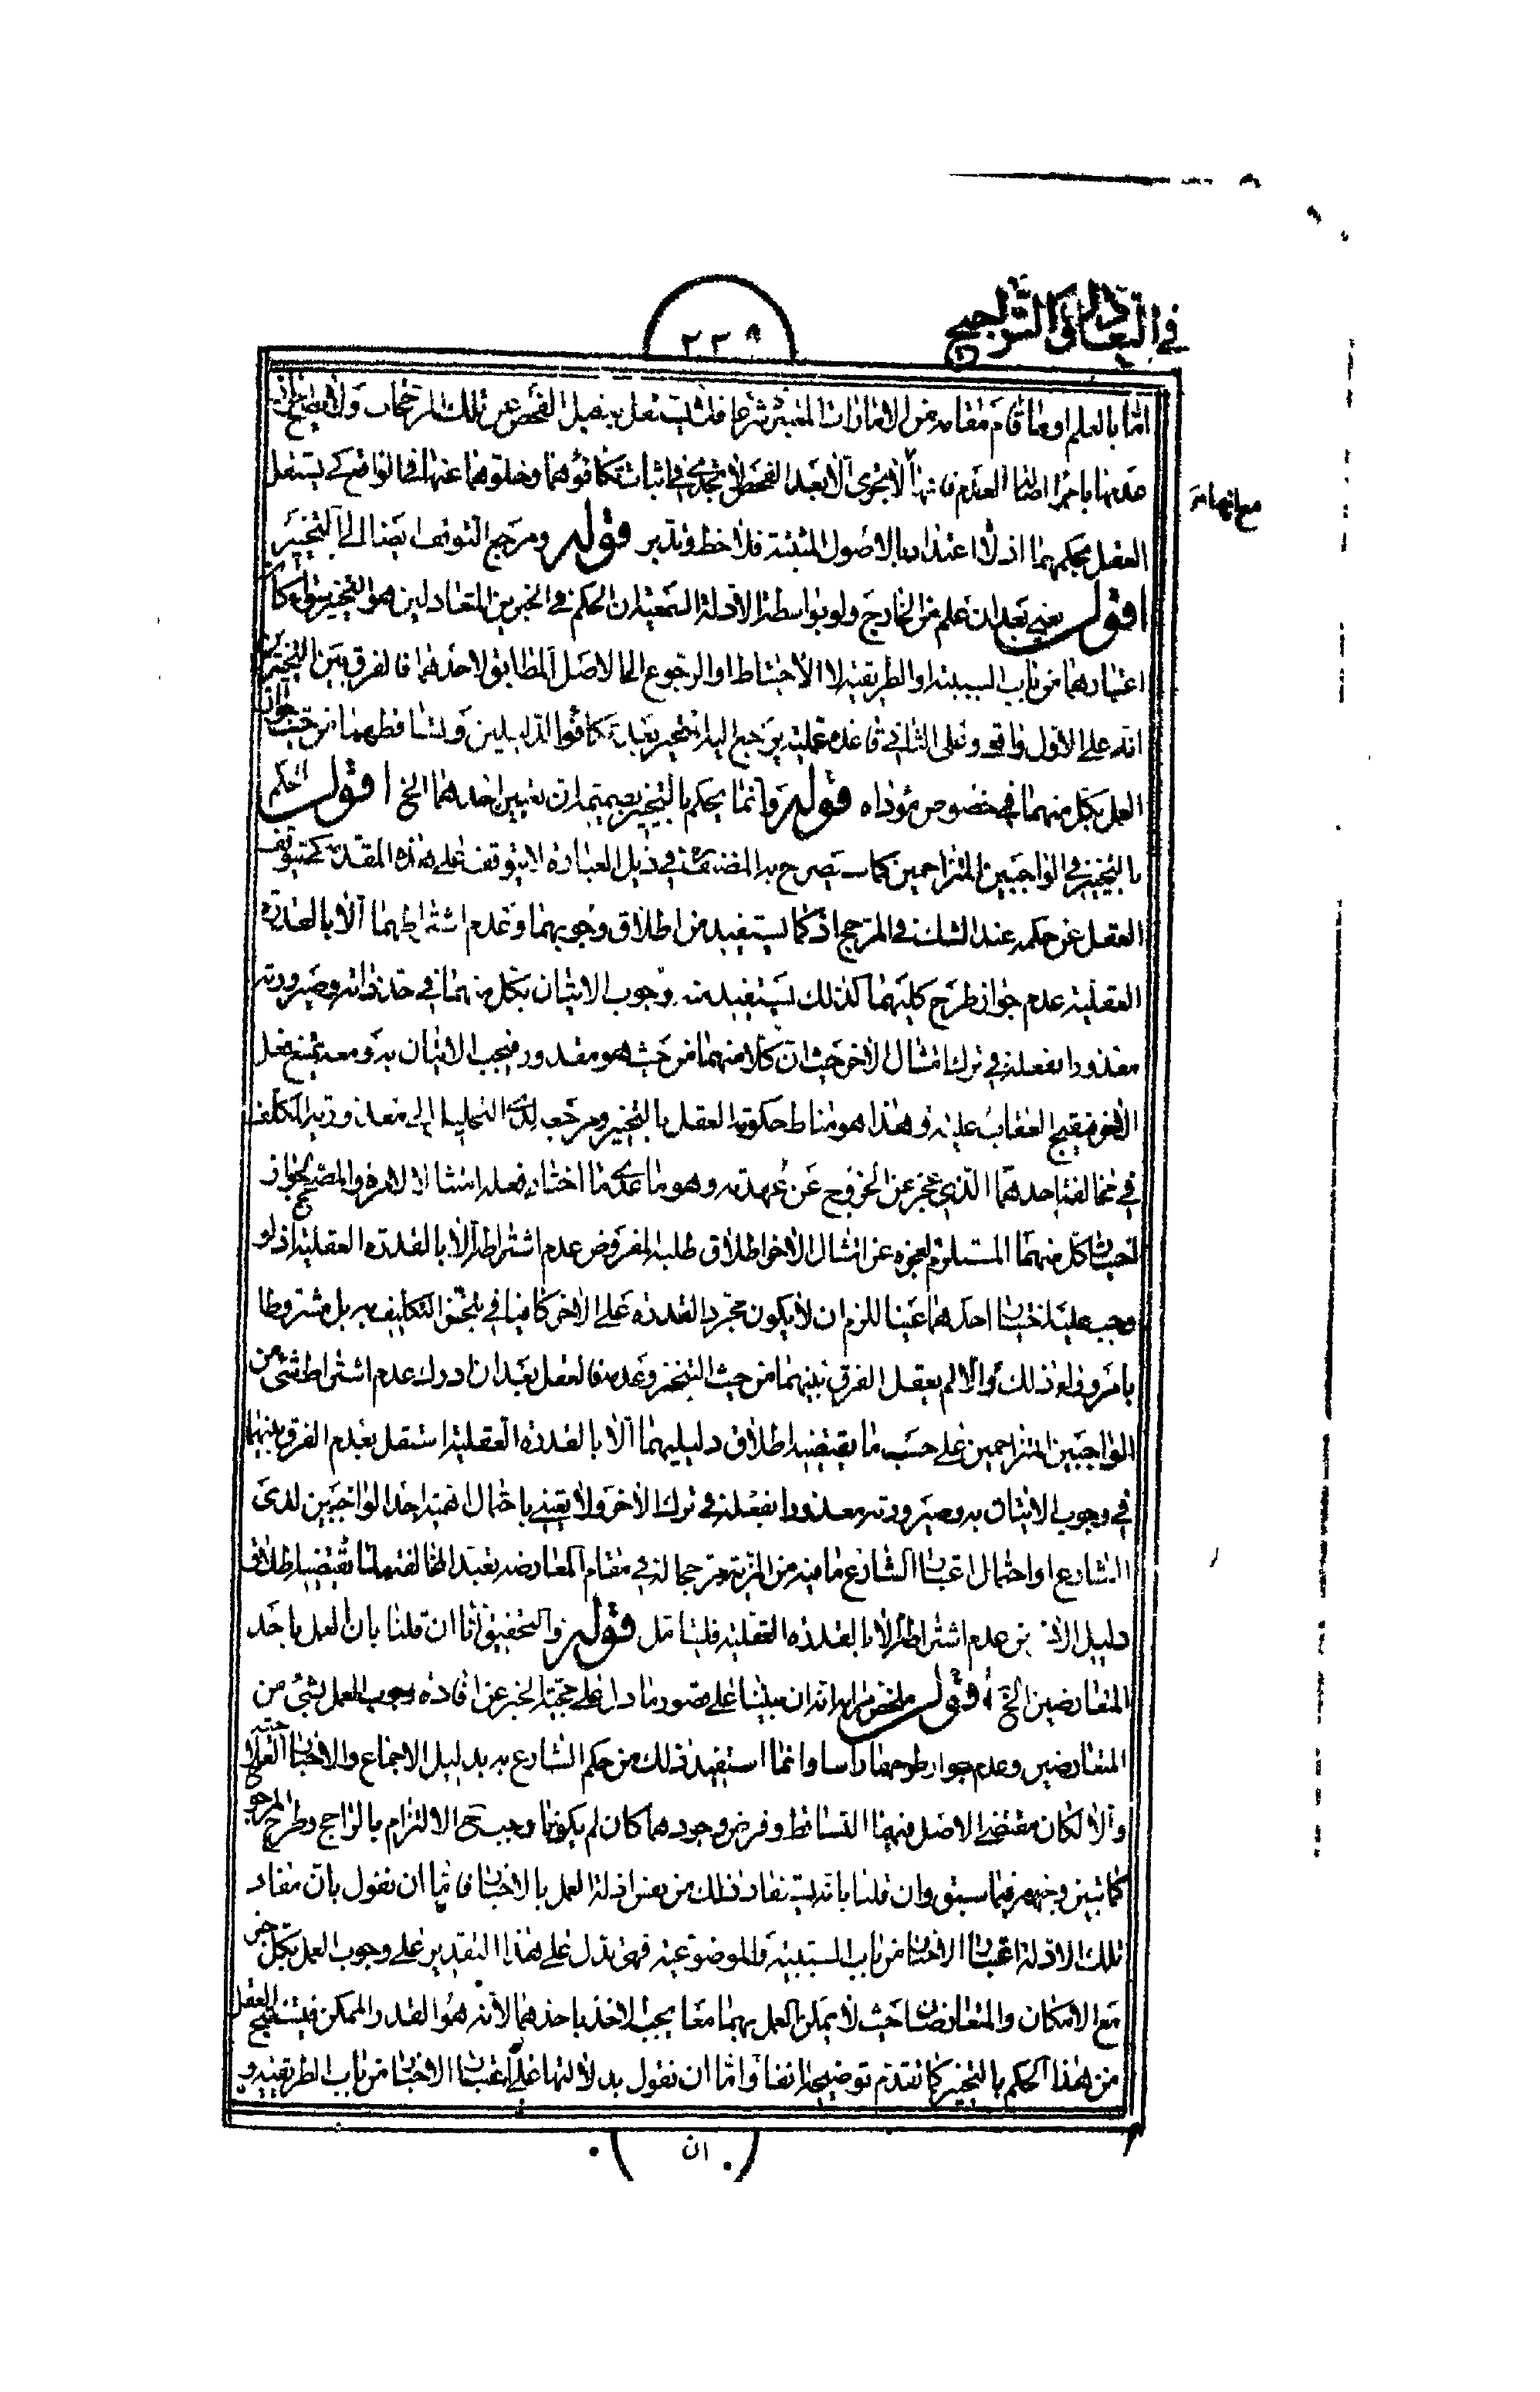 في التعادل والتراجيح
٢٢٩
اما بالعلم او ما قام مقامه من الامارات المعتبرة شرعا فلا يستقل به قبل الفحص عن تلك المرجحات ولا يصح احراز
عدمها باجراء اصالة العدم فانها لا تجرى الا بعد الفحص لا تجدى في اثبات تكافؤهما وخلوهما عنها في الواقع كي يستقل
مع انها
العقل بحكمهما اذ لا اعتداد بالاصول المثبتة فلاحظ وتدبر قوله ومرجع التوقف ايضا الى التخيير
اقول يعني بعد ان علم من الخارج ولو بواسطة الادلة السمعية ان الحكم في الخبرين المتعادلين هو التخيير سواء كان
اعتبارهما من باب السببية او الطريقية لا الاحتياط او الرجوع الى الاصل المطابق لاحدهما فالفرق بين التخييرين
انه على الاول واقعي وعلى الثاني قاعدة عملية يرجع اليها المتحير بعد تكافؤ الدليلين وتساقطهما من حيث جواز
العمل بكل منهما في خصوص مؤداه قوله وانما يحكم بالتخيير بضميمة ان تعيين احدهما الخ اقول الحكم
بالتخيير في الواجبين المتزاحمين كما سيصرح به المصنف ره في ذيل العبارة لا يتوقف على هذه المقدمة كي يتوقف
العقل عن حكمه عند الشك في المرجح اذ كما يستفيد من اطلاق وجوبهما وعدم اشتراطهما الا بالقدرة
العقلية عدم جواز طرح كليهما كذلك يستفيد منه وجوب الاتيان بكل منهما في حد ذاته وصيرورته
معذورا بفعله في ترك امتثال الاخر حيث ان كلا منهما من حيث هو مقدور فيجب الاتيان به ومعه يمتنع فعل
الاخر فيقبح العقاب عليه وهذا هو مناط حكومة العقل بالتخيير ومرجعه لدى التحليل الى معذورية المكلف
في مخالفة احدهما الذي عجز عن الخروج عن عهدته وهو ما عدى ما اختار فعله امتثالا لامره والمصحح لجواز
اختيار كل منهما المستلزم لعجزه عن امتثال الاخر اطلاق طلبه المفروض عدم اشتراطه الا بالقدرة العقلية اذ لو
وجب عليه اختيار احدهما عينا للزم ان لا يكون مجرد القدرة على الاخر كافيا في تنجز التكليف به بل مشروطا
بامر وراء ذلك والا لم يعقل الفرق بينهما من حيث التنجز وعدمه فالعقل بعد ان ادرك عدم اشتراط شئ من
الواجبين المتزاحمين على حسب ما يقتضيه اطلاق دليليهما الا بالقدرة العقلية استقل بعدم الفرق بينهما
في وجوب الاتيان به وصيرورته معذورا بفعله في ترك الاخر ولا يعتني باحتمال اهمية احد الواجبين لدى
الشارع او احتمال اعتبار الشارع ما فيه من المزية مرجحا له في مقام المعارضة بعد المخالفة لما يقتضيه اطلاق
دليل الاخر من عدم اشتراطه الا بالقدرة العقلية فليتامل قوله والتحقيق انا ان قلنا بان العمل باحد
المتعارضين الخ اقول ملخص مرامه انه ان بنينا على قصور ما دل على حجية الخبر عن افادة وجوب العمل بشئ من
المتعارضين وعدم جواز طرحهما راسا وانما استفيد ذلك من حكم الشارع به بدليل الاجماع والاخبار العلاجية
والا لكان مقتضى الاصل فيهما التساقط وفرض وجودهما كان لم يكونا وجب ح الالتزام بالراجح وطرح المرجوح
كما تبين وجهه فيما سبق وان قلنا بانه يستفاد ذلك من نفس ادلة العمل بالاخبار فاما ان نقول بان مفاد
تلك الادلة اعتبار الاخبار من باب السببية والموضوعية فهي تدل على هذا التقدير على وجوب العمل بكل خبر
مع الامكان والمتعارضان حيث لا يمكن العمل بهما معا يجب الاخذ باحدهما لانه هو القدر الممكن فيستنتج العقل
من هذا الحكم بالتخيير كما تقدم توضيحه انفا واما ان نقول بدلالتها على اعتبار الاخبار من باب الطريقية و
ان